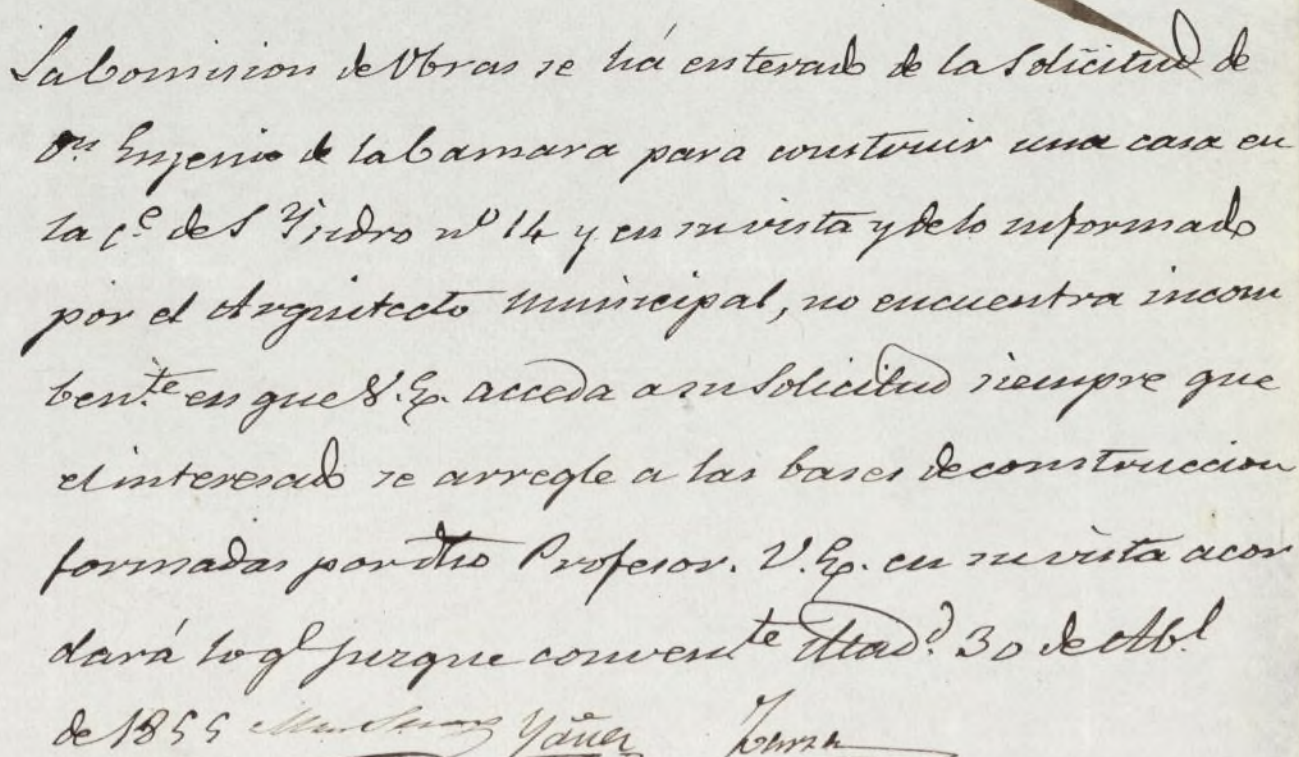 La Comision de Obras se há enterado de la Solicitud de
Dn. Eugenio de la Camara para construir una casa en
la ce. de S Ysidro nº 14 y en su vista y de lo informado
por el Arquitecto Municipal, no encuentra incom
benⁿᵗᵉ en que V.E. acceda a su Solicitud siempre que
el interesado se arregle a las bases de construccion
formadas por dho Profesor. V.E. en su vista acor
dará lo ql. juzgue convenᵗᵉ Madd. 30 de Abl
de 1855 Yañez